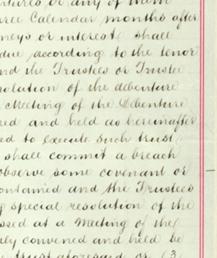 entures or any of them
hree Calendar months after
neys or interest shall
due, according to the tenor
nd the Trustees or Trustee
solution of the debenture
Meeting of the Debenture
ned and held as hereinafter
ed to execute such trust
shall commit a breach
observe some covenant or
contained and the Trustees
y special resolution of the
ssed at a Meeting of the
ly convened and held be
trust aforesaid or (3